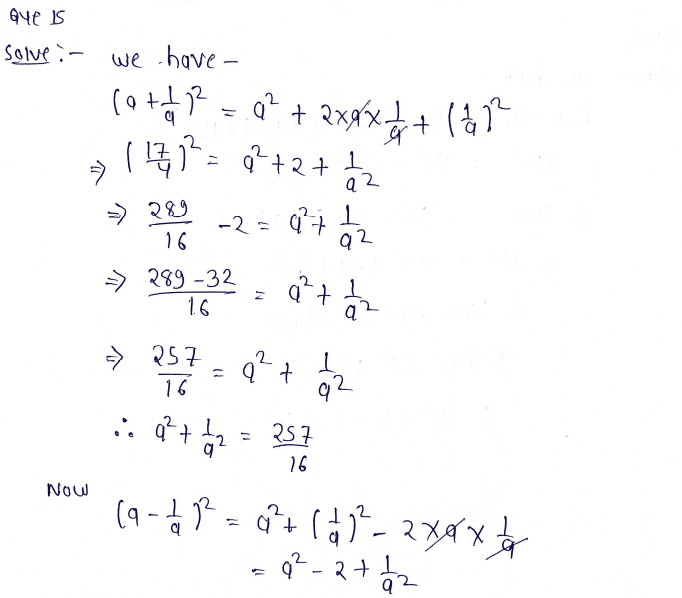 Que 15
Solve :- we have -
(a + 1/a)² = a² + 2×a×1/a + (1/a)²
⇒ (17/4)² = a² + 2 + 1/a²
⇒ 289/16 - 2 = a² + 1/a²
⇒ (289 - 32)/16 = a² + 1/a²
⇒ 257/16 = a² + 1/a²
∴ a² + 1/a² = 257/16
Now
(a - 1/a)² = a² + (1/a)² - 2×a×1/a
= a² - 2 + 1/a²